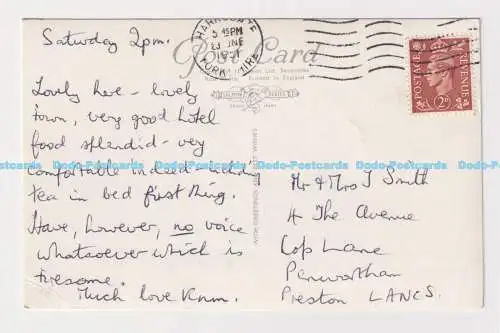 Saturday 2pm.
Post Card
HARROGATE
5 45PM
YORKSHIRE
POSTAGE REVENUE
2D
Lovely here - lovely
town, very good hotel
food splendid - very
comfortable indeed - includ'g
tea in bed first thing.
Have, however, no voice
whatsoever which is
tiresome.
Much love
WITH GREETINGS AND BEST WISHES
Mr & Mrs J Smith
4 The Avenue
Cop Lane
Penwortham
Preston LANCS.
Dodo-Postcards Dodo-Postcards Dodo-Postcards Dodo-Postcards Dodo-Postcards